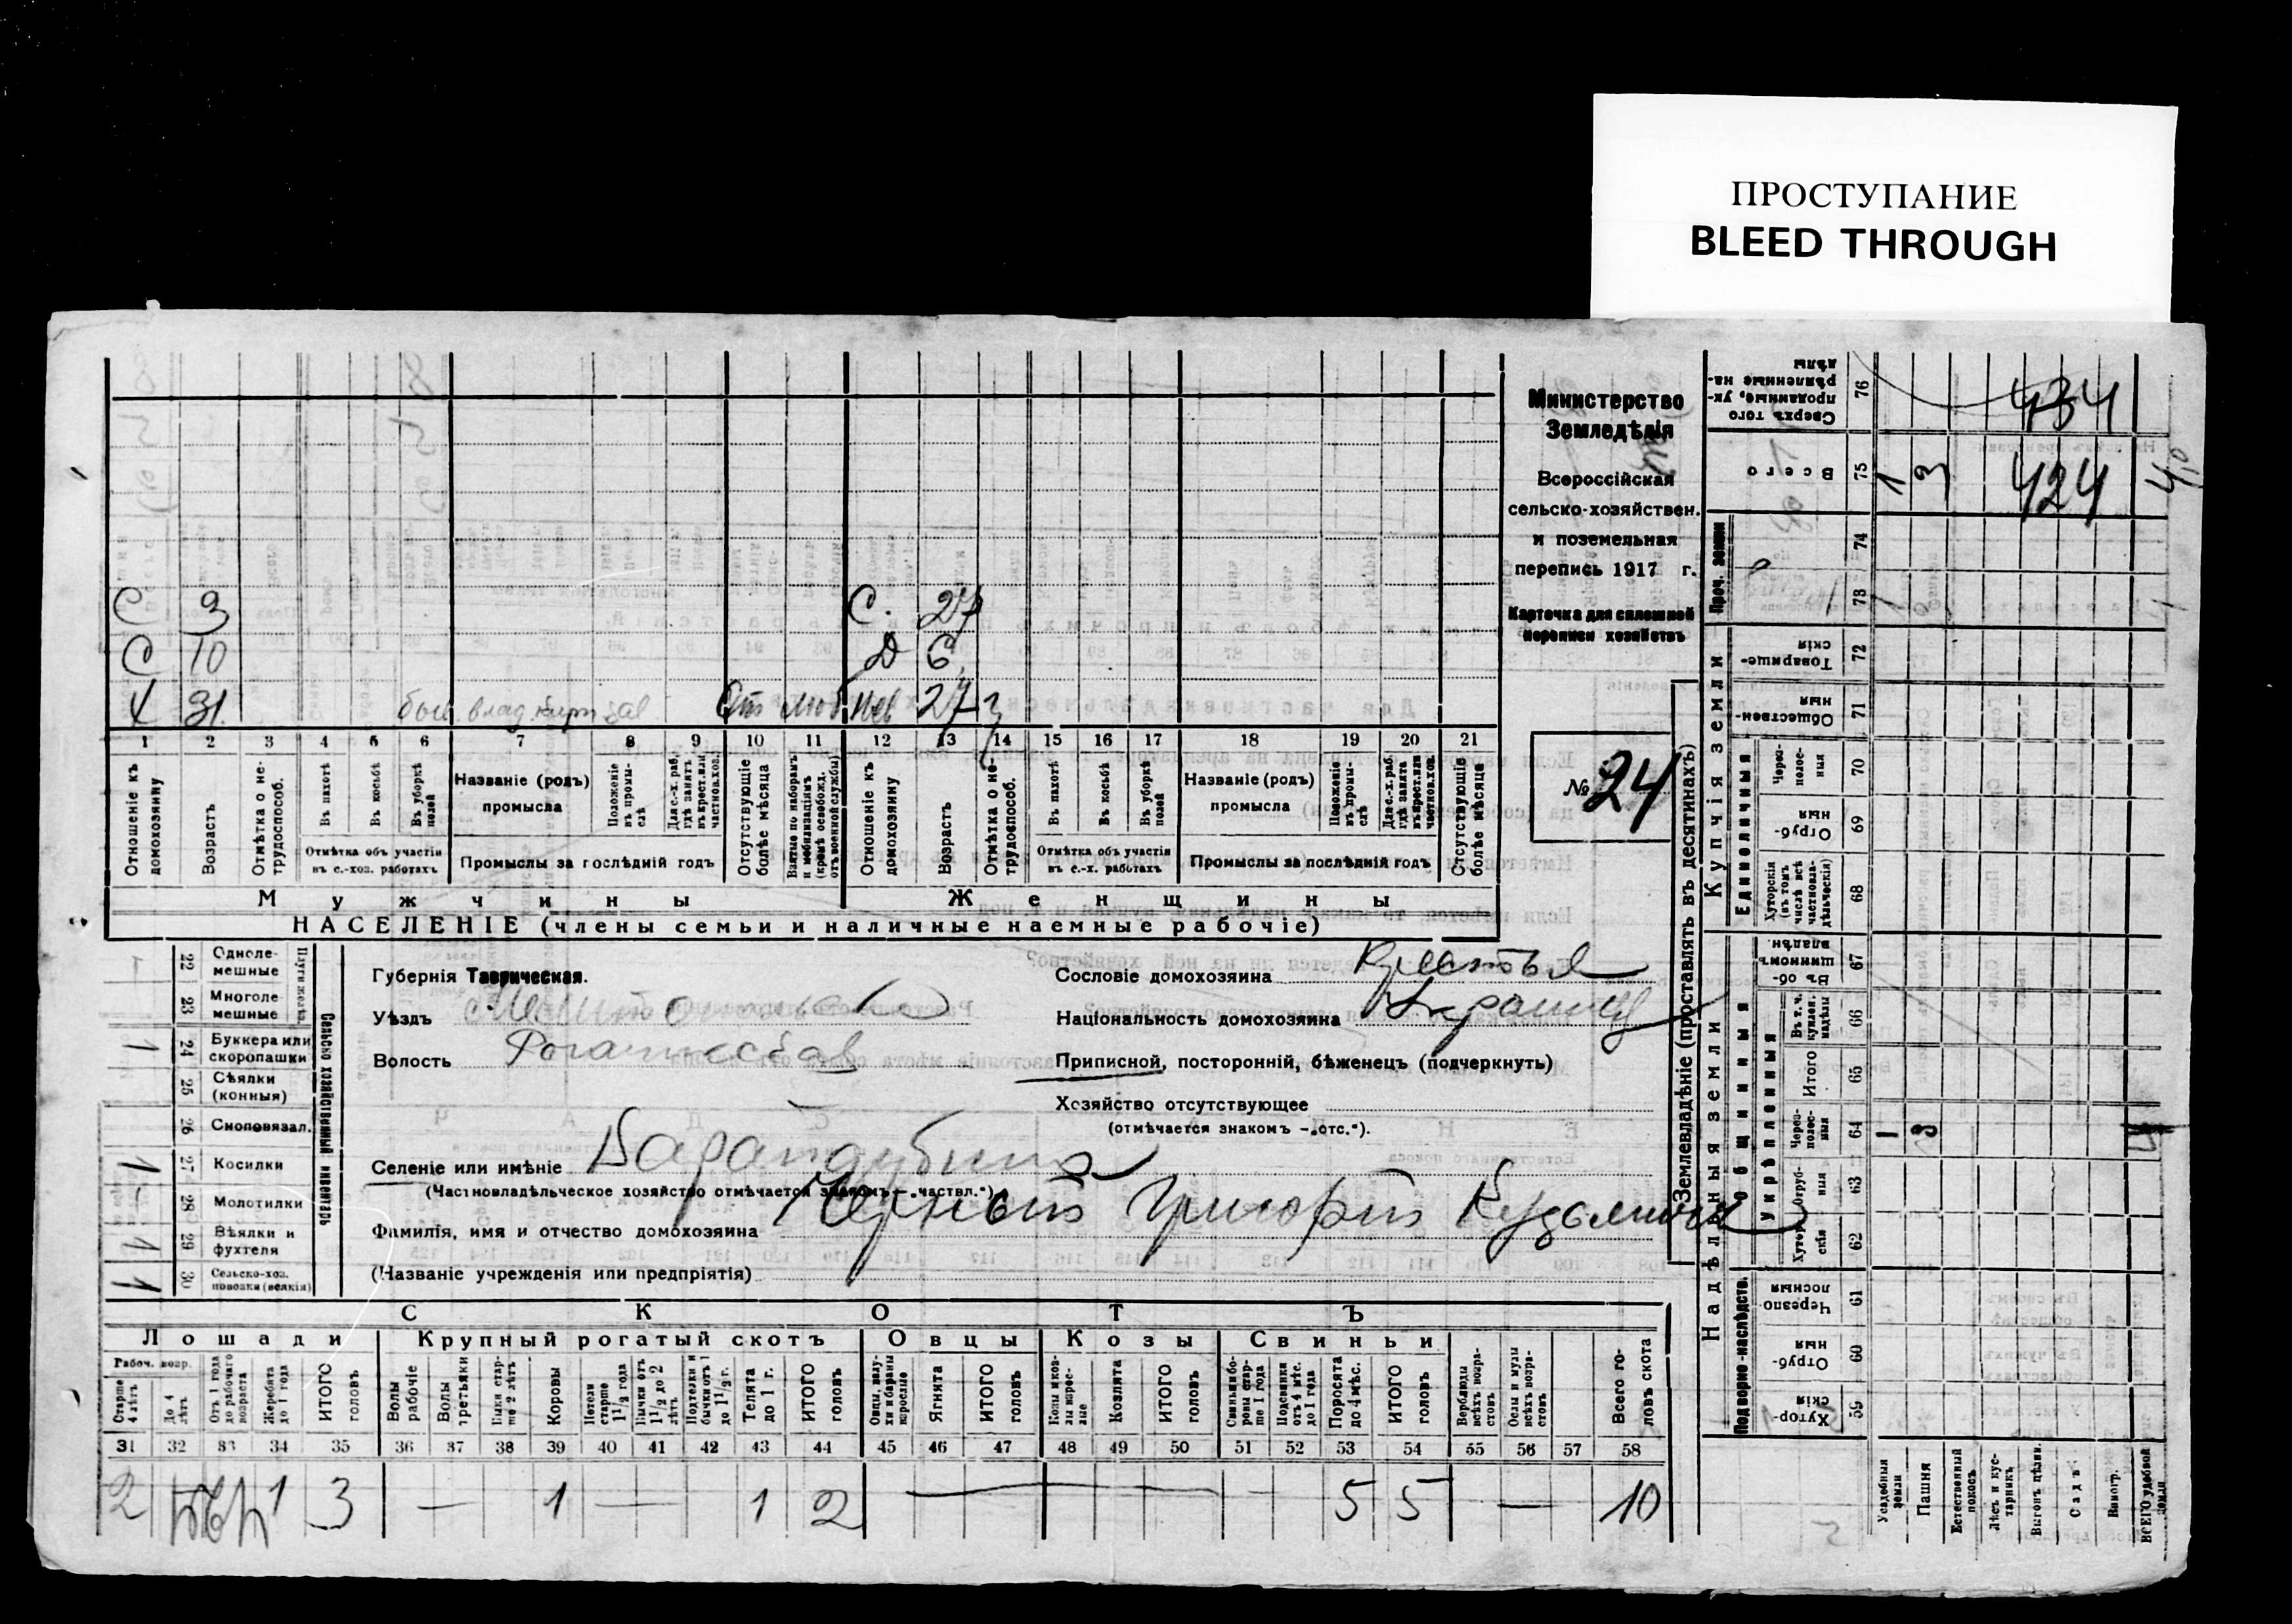 ПРОСТУПАНИЕ
BLEED THROUGH
Министерство
Земледѣлія
Всероссійская
сельско-хозяйствен.
и поземельная
перепись 1917 г.
Карточка для сплошной
переписи хозяйствъ
№ 24
С 3 С. 27
С 10 Д 6
Х 31
1 2 3 4 5 6 7 8 9 10 11 12 13 14 15 16 17 18 19 20 21
Отношеніе къ домохозяину
Возрастъ
Отмѣтка о не-трудоспособ.
Въ пахотѣ
Въ косьбѣ
Въ уборкѣ полей
Отмѣтка объ участіи
въ с.-хоз. работахъ
Названіе (родъ)
промысла
Положеніе въ промы-слѣ
Для с.-х. раб. гдѣ занятъ въ крест. или частн. хоз.
Промыслы за послѣдній годъ
Отсутствующіе болѣе мѣсяца
Взятые по наборамъ и мобилизаціямъ (кромѣ освобожд. отъ военной службы)
Отношеніе къ домохозяину
Возрастъ
Отмѣтка о не-трудоспособ.
Въ пахотѣ
Въ косьбѣ
Въ уборкѣ полей
Отмѣтка объ участіи
въ с.-х. работахъ
Названіе (родъ)
промысла
Положеніе въ промы-слѣ
Для с.-х. раб. гдѣ занята въ крест. или частн. хоз.
Промыслы за послѣдній годъ
Отсутствующіе болѣе мѣсяца
Мужчины Женщины
НАСЕЛЕНІЕ (члены семьи и наличные наемные рабочіе)
22 Однолемешные
23 Многолемешные
Плуги желѣз.
1 24 Буккера или скоропашки
25 Сѣялки (конныя)
26 Сноповязал.
1 27 Косилки
28 Молотилки
1 29 Вѣялки и фухтеля
1 30 Сельско-хоз. повозки (всякія)
Сельско хозяйственный инвентарь
Губернія Таврическая.
Уѣздъ
Волость
Селеніе или имѣніе
(Частновладѣльческое хозяйство отмѣчается знакомъ —„частвл.“)
Фамилія, имя и отчество домохозяина Черный Григорій Кузьмичъ
(Названіе учрежденія или предпріятія)
Сословіе домохозяина
Національность домохозяина
Приписной, посторонній, бѣженецъ (подчеркнуть)
Хозяйство отсутствующее
(отмѣчается знакомъ —„отс.“).
СКОТЪ
Лошади Крупный рогатый скотъ Овцы Козы Свиньи
Рабоч. возр.
Старше 4 лѣтъ
До 4 лѣтъ
Отъ 1 года до рабочаго возраста
Жеребята до 1 года
ИТОГО головъ
Волы рабочіе
Волы третьяки
Быки стар-ше 2 лѣтъ
Коровы
Нетели старше 1½ года
Бычки отъ 1½ до 2 лѣтъ
Подтелки и бычки отъ 1 до 1½ г.
Телята до 1 г.
ИТОГО головъ
Овцы, валу-хи и бараны взрослые
Ягнята
ИТОГО головъ
Козы и коз-лы взрос-лые
Козлята
ИТОГО головъ
Свиньи бо-ровы стар-ше 1 года
Подсвинки отъ 4 мѣс. до 1 года
Поросята до 4 мѣс.
ИТОГО головъ
Верблюды всѣхъ возра-стовъ
Ослы и мулы всѣхъ возра-стовъ
Всего го-ловъ скота
31 32 33 34 35 36 37 38 39 40 41 42 43 44 45 46 47 48 49 50 51 52 53 54 55 56 57 58
2 1 3 — 1 — 1 2 — — 5 5 — 10
Землевладѣніе (проставлять въ десятинахъ)
Купчія земли
Надѣльныя земли
Сверхъ того проданные, ук-рѣпленные на-дѣлы 76 434
Всего 75 1 3 424 4
Проч. земли
74
73
Товарище-скія 72
Обществен-ныя 71
Единоличныя
Через-полос-ныя 70
Отруб-ныя 69
Хуторскія (въ томъ числѣ всѣ частновла-дѣльческія) 68
Общинныя
Въ об-щинномъ владѣн. 67
Укрѣпленныя
Въ т. ч. куплен. надѣлы 66
Итого 65
Через-полос-ныя 64 1 3
Отруб-ныя 63
Хутор-скія 62
Подворно-наслѣдств.
Черезпо-лосныя 61
Отруб-ныя 60
Хутор-скія 59
Усадебныя земли
Пашня
Естественный покосъ
Лѣсъ и кус-тарникъ
Выгонъ цѣлин.
Садъ
Виногр.
ВСЕГО удобной земли